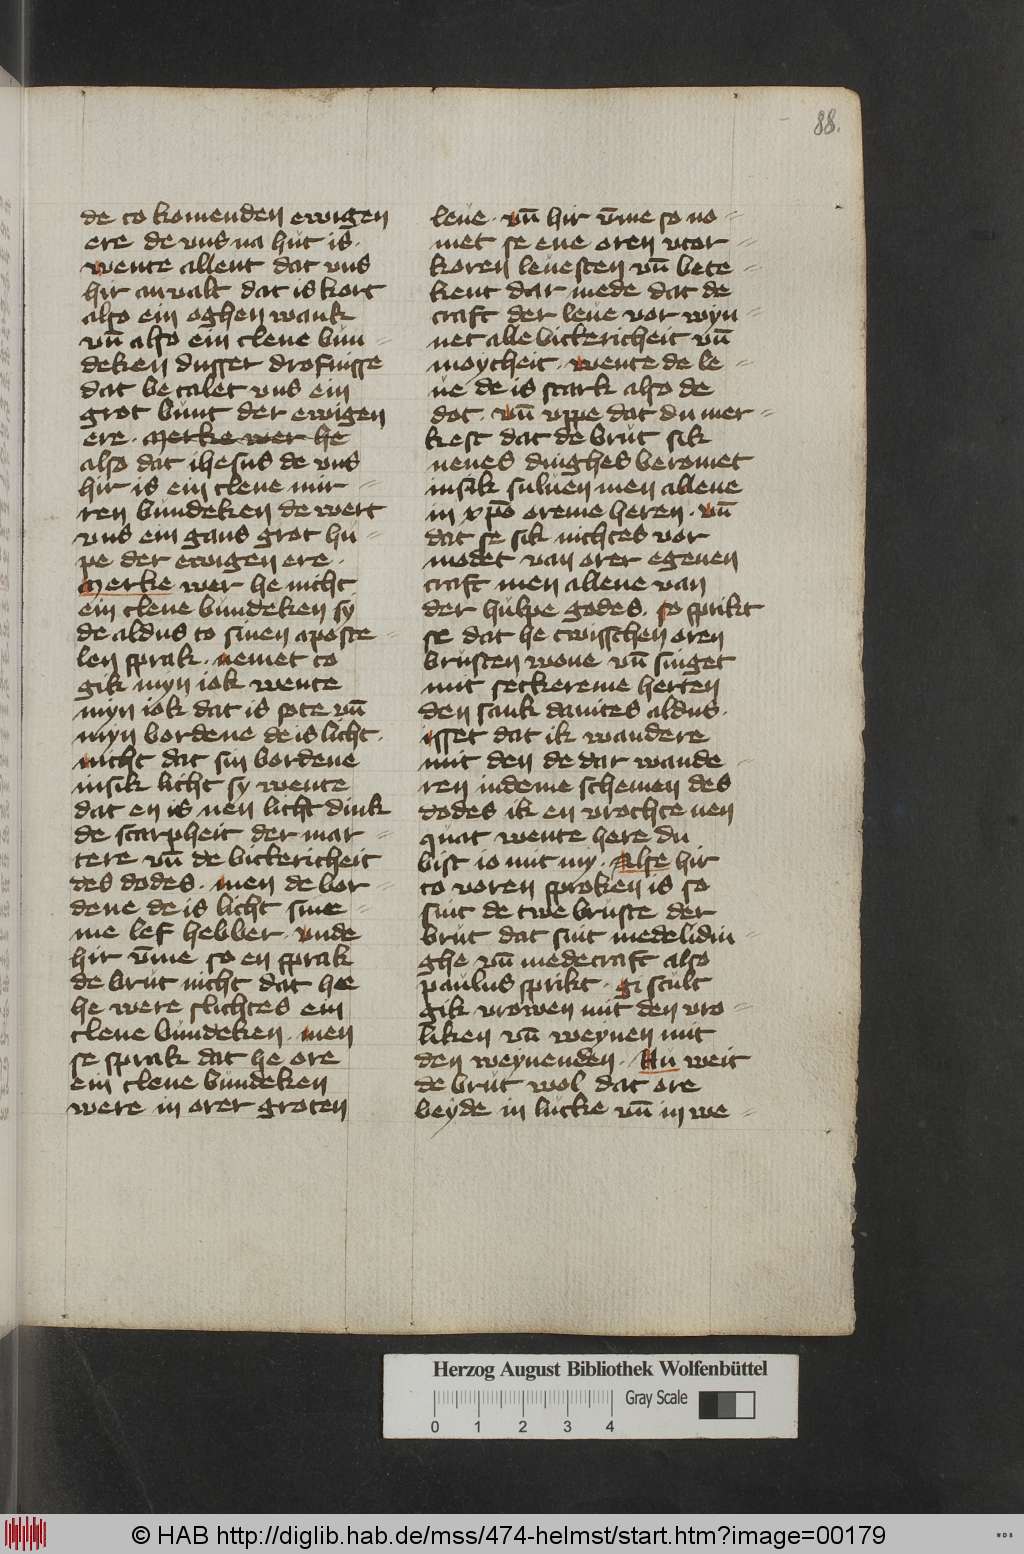 88.
de to komenden ewigen
ere de vns na hut is.
wente allent dat vns
hir an valt dat is kort
also ein oghen wank
vn̄ also ein clene bun=
deken dusser drofnisse
dat betalet vns ein
grot bunt der ewigen
ere. merke wer he
also dat ihesus de vns
hir is ein clene mir=
ren bundeken de wert
vns ein gans grot hu=
pe der ewigen ere.
Merke wer he nicht
ein clene bundeken sy
de aldus to sinen aposte=
len sprak. nemet to
gik myn iok wente
myn iok dat is sote vn̄
myn bordene de is licht.
nicht dat sin bordene
insik licht sy wente
dat en is nen licht dink
de scarpheit der mar=
tere vn̄ de bickericheit
des dodes. men de bor=
dene de is licht sine=
me lef hebber. vnde
hir v̄me so en sprak
de brut nicht dat he
he were slichtes ein
clene bundeken. men
se sprak dat he ore
ein clene bundeken
were in orer groten
leue. vn̄ hir v̄me so no=
met se ene oren vtor=
koren leuesten vn̄ bete=
kent dar mede dat de
craft der leue vor wyn=
net alle bickericheit vn̄
moycheit. wente de le=
ue de is stark also de
dot. vn̄ vppe dat du mer=
kest dat de brut sik
nenes dinghes beromet
insik suluen men allene
in xp̄o oreme heren. vn̄
dat se sik nichtes vor
modet van orer egenen
craft men allene van
der hulpe godes. so sprikt
se dat he twisschen oren
brusten wone vn̄ singet
mit seckereme herten
den sank dauites aldus.
isset dat ik wandere
mit den de dar wande=
ren indeme schemen des
dodes ik en vrochte nen
quat wente here du
bist io mit my. Alse hir
to voren sproken is so
sint de twe bruste der
brut dat sint medelidin=
ghe vn̄ medecraft also
paulus sprikt. gi scult
gik vrowen mit den vro=
liken vn̄ weynen mit
den weynenden. Nu weit
de brut wol dat ore
beyde in lucke vn̄ in we=
Herzog August Bibliothek Wolfenbüttel
0 1 2 3 4 Gray Scale
© HAB http://diglib.hab.de/mss/474-helmst/start.htm?image=00179